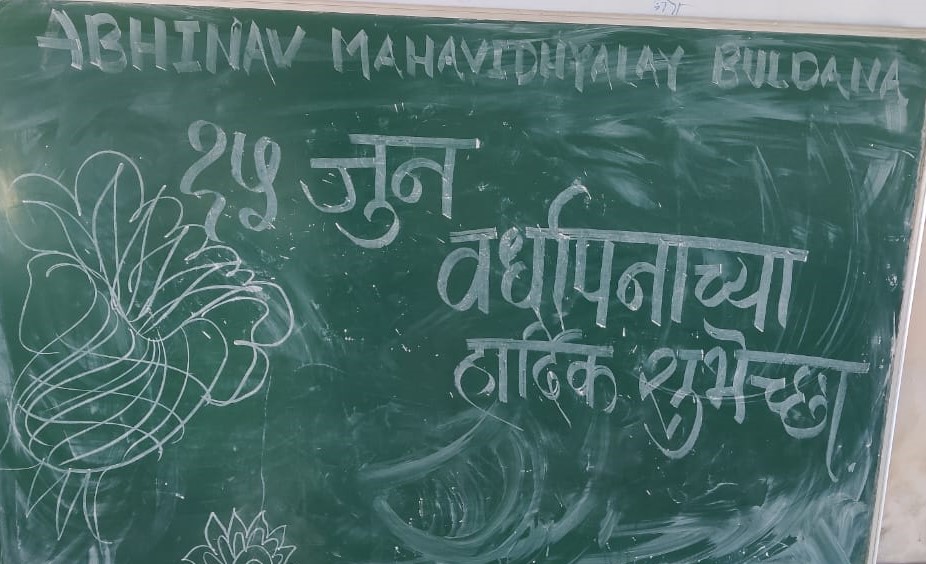 ABHINAV MAHAVIDHYALAY BULDANA
१५ जून
वर्धापनाच्या
हार्दिक शुभेच्छा